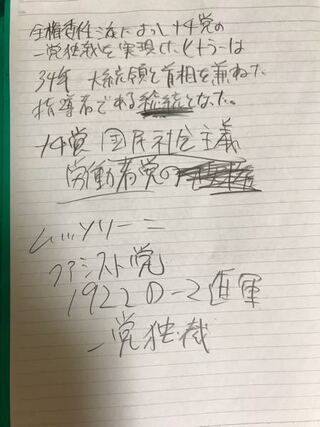 全権委任法によってナチ党の
一党独裁を実現したヒトラーは
34年 大統領と首相を兼ねた
指導者である総統となった。
ナチ党 国民社会主義
労働者党の
ムッソリーニ
ファシスト党
1922ローマ進軍
一党独裁